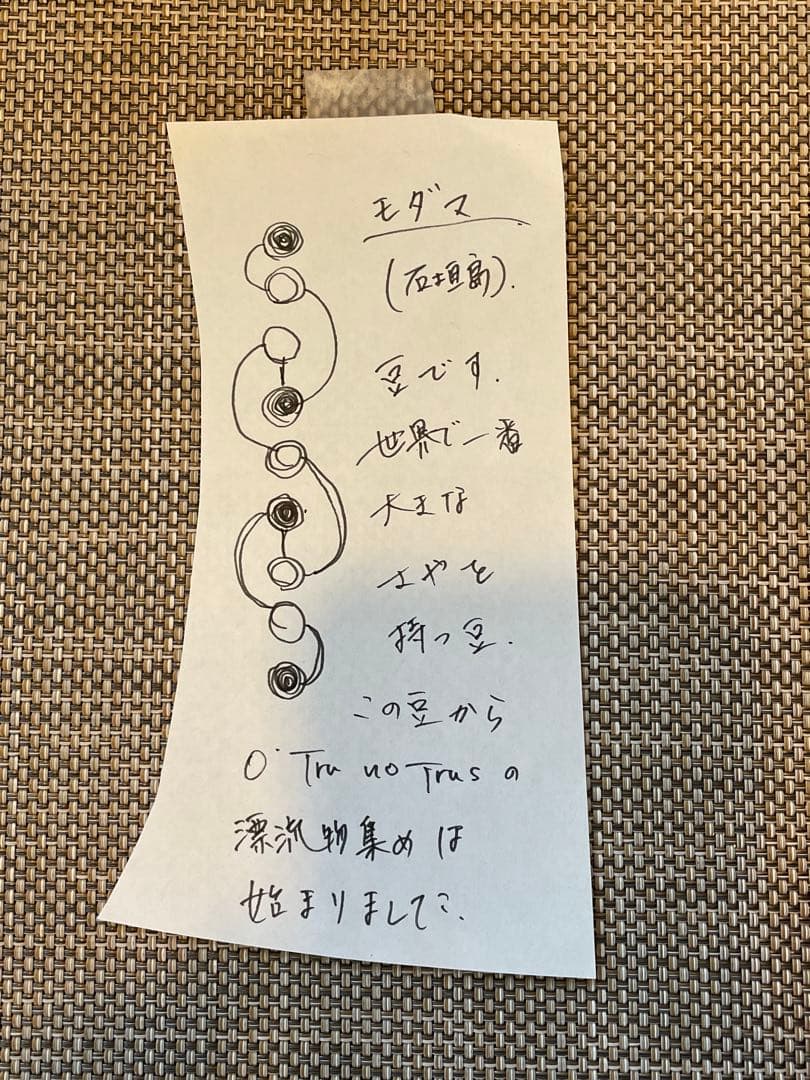 モダマ
(石垣島).
豆です.
世界で一番
大きな
さやを
持つ豆.
この豆から
O' Tru no Trus の
漂流物集めは
始まりました.